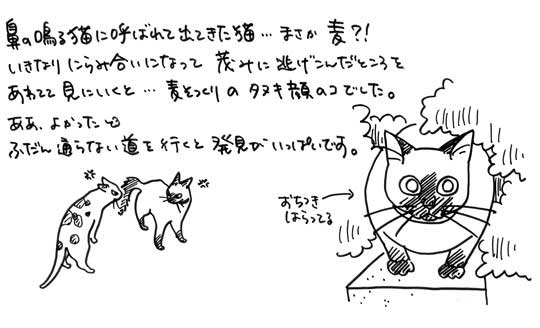 鼻の鳴る猫に呼ばれて出てきた猫…まさか麦?!
いきなりにらみ合いになって茂みに逃げこんだところを
あわてて見にいくと…麦そっくりのタヌキ顔のコでした。
ああ、よかった
ふだん通らない道を行くと発見がいっぱいです。
おちつき
はらってる